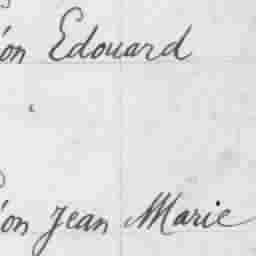 on Edouard
on Jean Marie